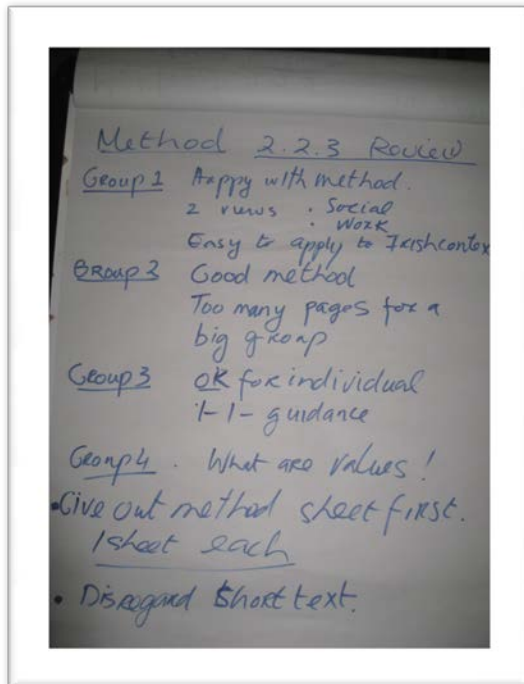 Method 2.2.3 Review
Group 1 Happy with method.
2 views . Social
. Work
Easy to apply to Irish contex
Group 2 Good method
Too many pages for a
big group
Group 3 OK for individual
1-1- guidance
Group 4. What are values!
• Give out method sheet first.
1 sheet each
• Disregard short text.